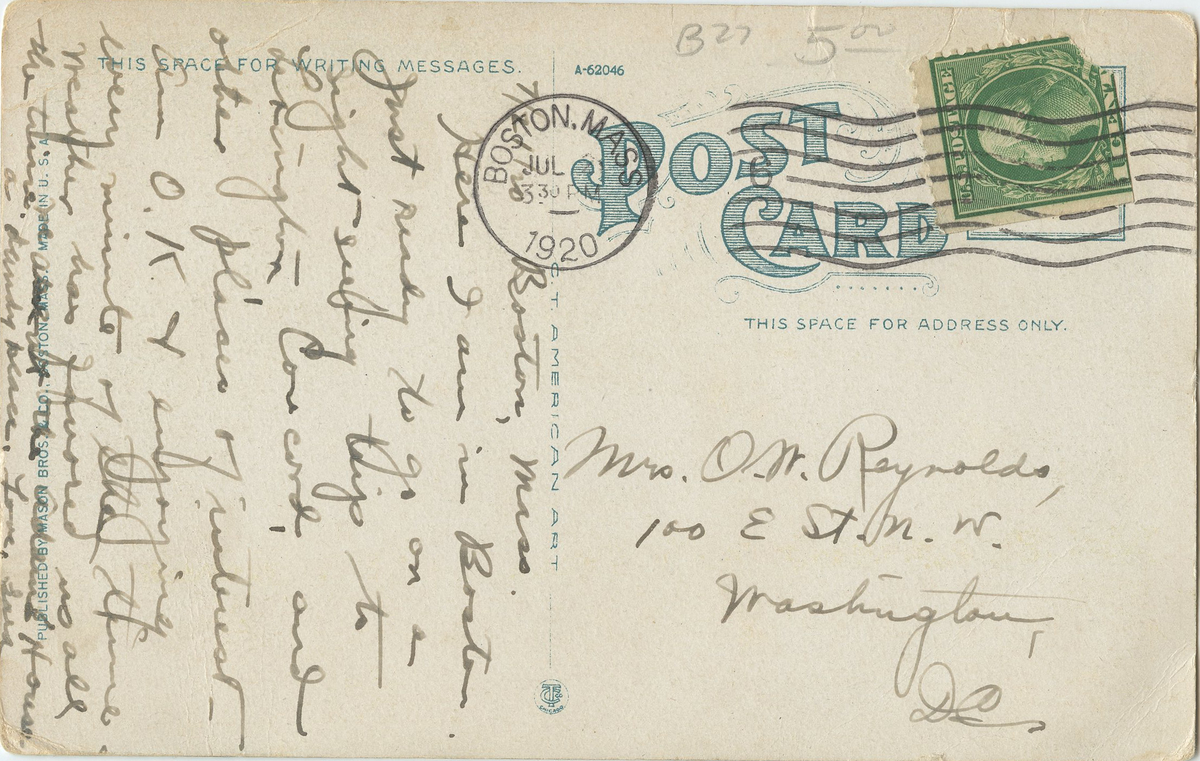 B27 5.00
THIS SPACE FOR WRITING MESSAGES.
A-62046
POST
CARD
BOSTON, MASS
JUL
3 30 PM
1920
U.S. POSTAGE
THIS SPACE FOR ADDRESS ONLY.
Mrs. O. W. Reynolds,
100 E St. N. W.
Washington,
DC
C. T. AMERICAN ART
CHICAGO
PUBLISHED BY MASON BROS. & CO., BOSTON, MASS. MADE IN U.S.A.
Boston, Mass.
Here I am in Boston
Just ready to go on a
Sight-seeing trip to
Lexington - Concord, and
other places of interest -
Am O.K. & enjoying
every minute of the time.
Weather has favored us all
the time.